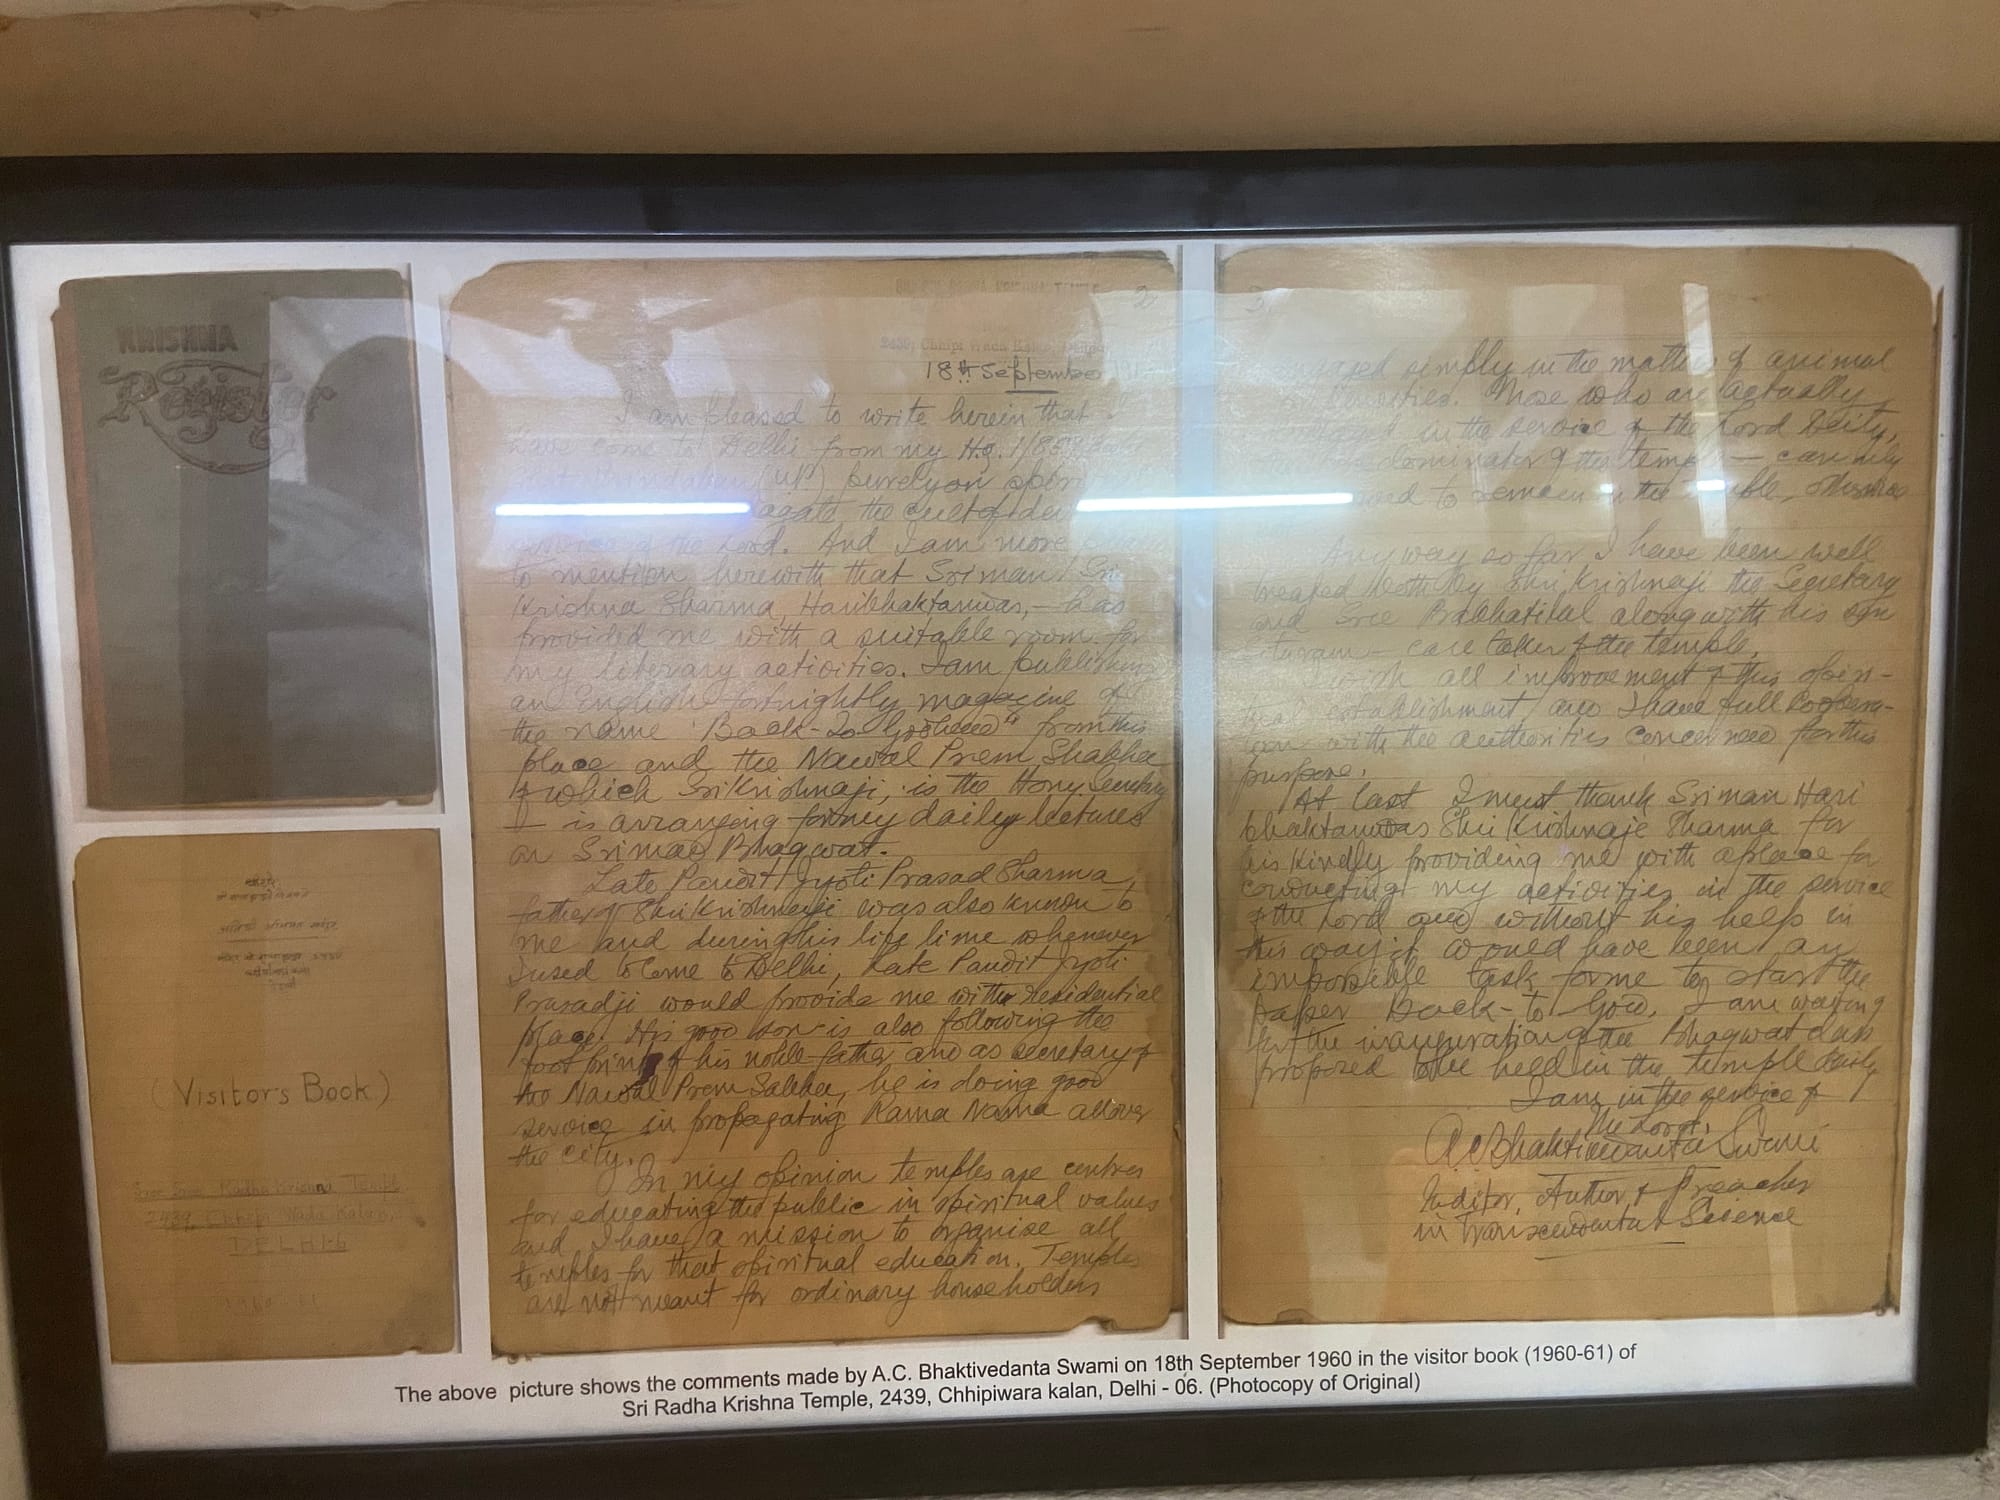 KRISHNA
Register
(Visitor's Book)
Radha Krishna Temple
2439, Chhipi Wada Kalan,
DELHI-6
2
2439, Chhipi Wada Kalan,
18th September
I am pleased to write herein that
have come to Delhi from my H.q.
(U.P) purely on
the cult of
service of the Lord. And I am more
to mention herewith that Sriman Sri
Krishna Sharma, Haribhaktanudas, — has
provided me with a suitable room for
my literary activities. I am publishing
an English fortnightly magazine of
the name "Back-to Godhead" from this
place and the Nawal Prem Shabha
of which Sri Krishnaji, is the Hony Secretary
— is arranging for my daily lectures
on Srimad Bhagwat.
Late Pandit Jyoti Prasad Sharma,
father of Shri Krishnaji was also known to
me and during his life time whenever
I used to come to Delhi, Late Pandit Jyoti
Prasadji would provide me with residential
place. His good son is also following the
foot print of his noble father and as secretary of
the Nawal Prem Sabha, he is doing good
service in propagating Rama Nama all over
the city.
In my opinion temples are centres
for educating the public in spiritual values
and I have a mission to organise all
temples for that spiritual education. Temples
are not meant for ordinary householders
3
engaged simply in the matter of animal
Those who are actually
engaged in the service of the Lord Deity,
the temple — can only
to remain in the temple, otherwise
Anyway so far I have been well
treated both by Shri Krishnaji the Secretary
and Sree Prabhatilal along with his son
— care taker of the temple.
I wish all improvement of this spiri-
tual establishment and I have full Coopera-
tion with the authorities concerned for this
purpose.
At last I must thank Sriman Hari
bhaktanudas Shri Krishnaje Sharma for
his kindly providing me with a place for
conducting my activities in the service
of the Lord and without his help in
this way it would have been an
impossible task for me to start the
paper Back-to God. I am waiting
for the inauguration of the Bhagwat class
proposed to be held in the temple daily
I am in the service of
the Lord,
A.C. Bhaktivedanta Swami
Editor, Author & Preacher
in transcendental Science
The above picture shows the comments made by A.C. Bhaktivedanta Swami on 18th September 1960 in the visitor book (1960-61) of
Sri Radha Krishna Temple, 2439, Chhipiwara kalan, Delhi - 06. (Photocopy of Original)